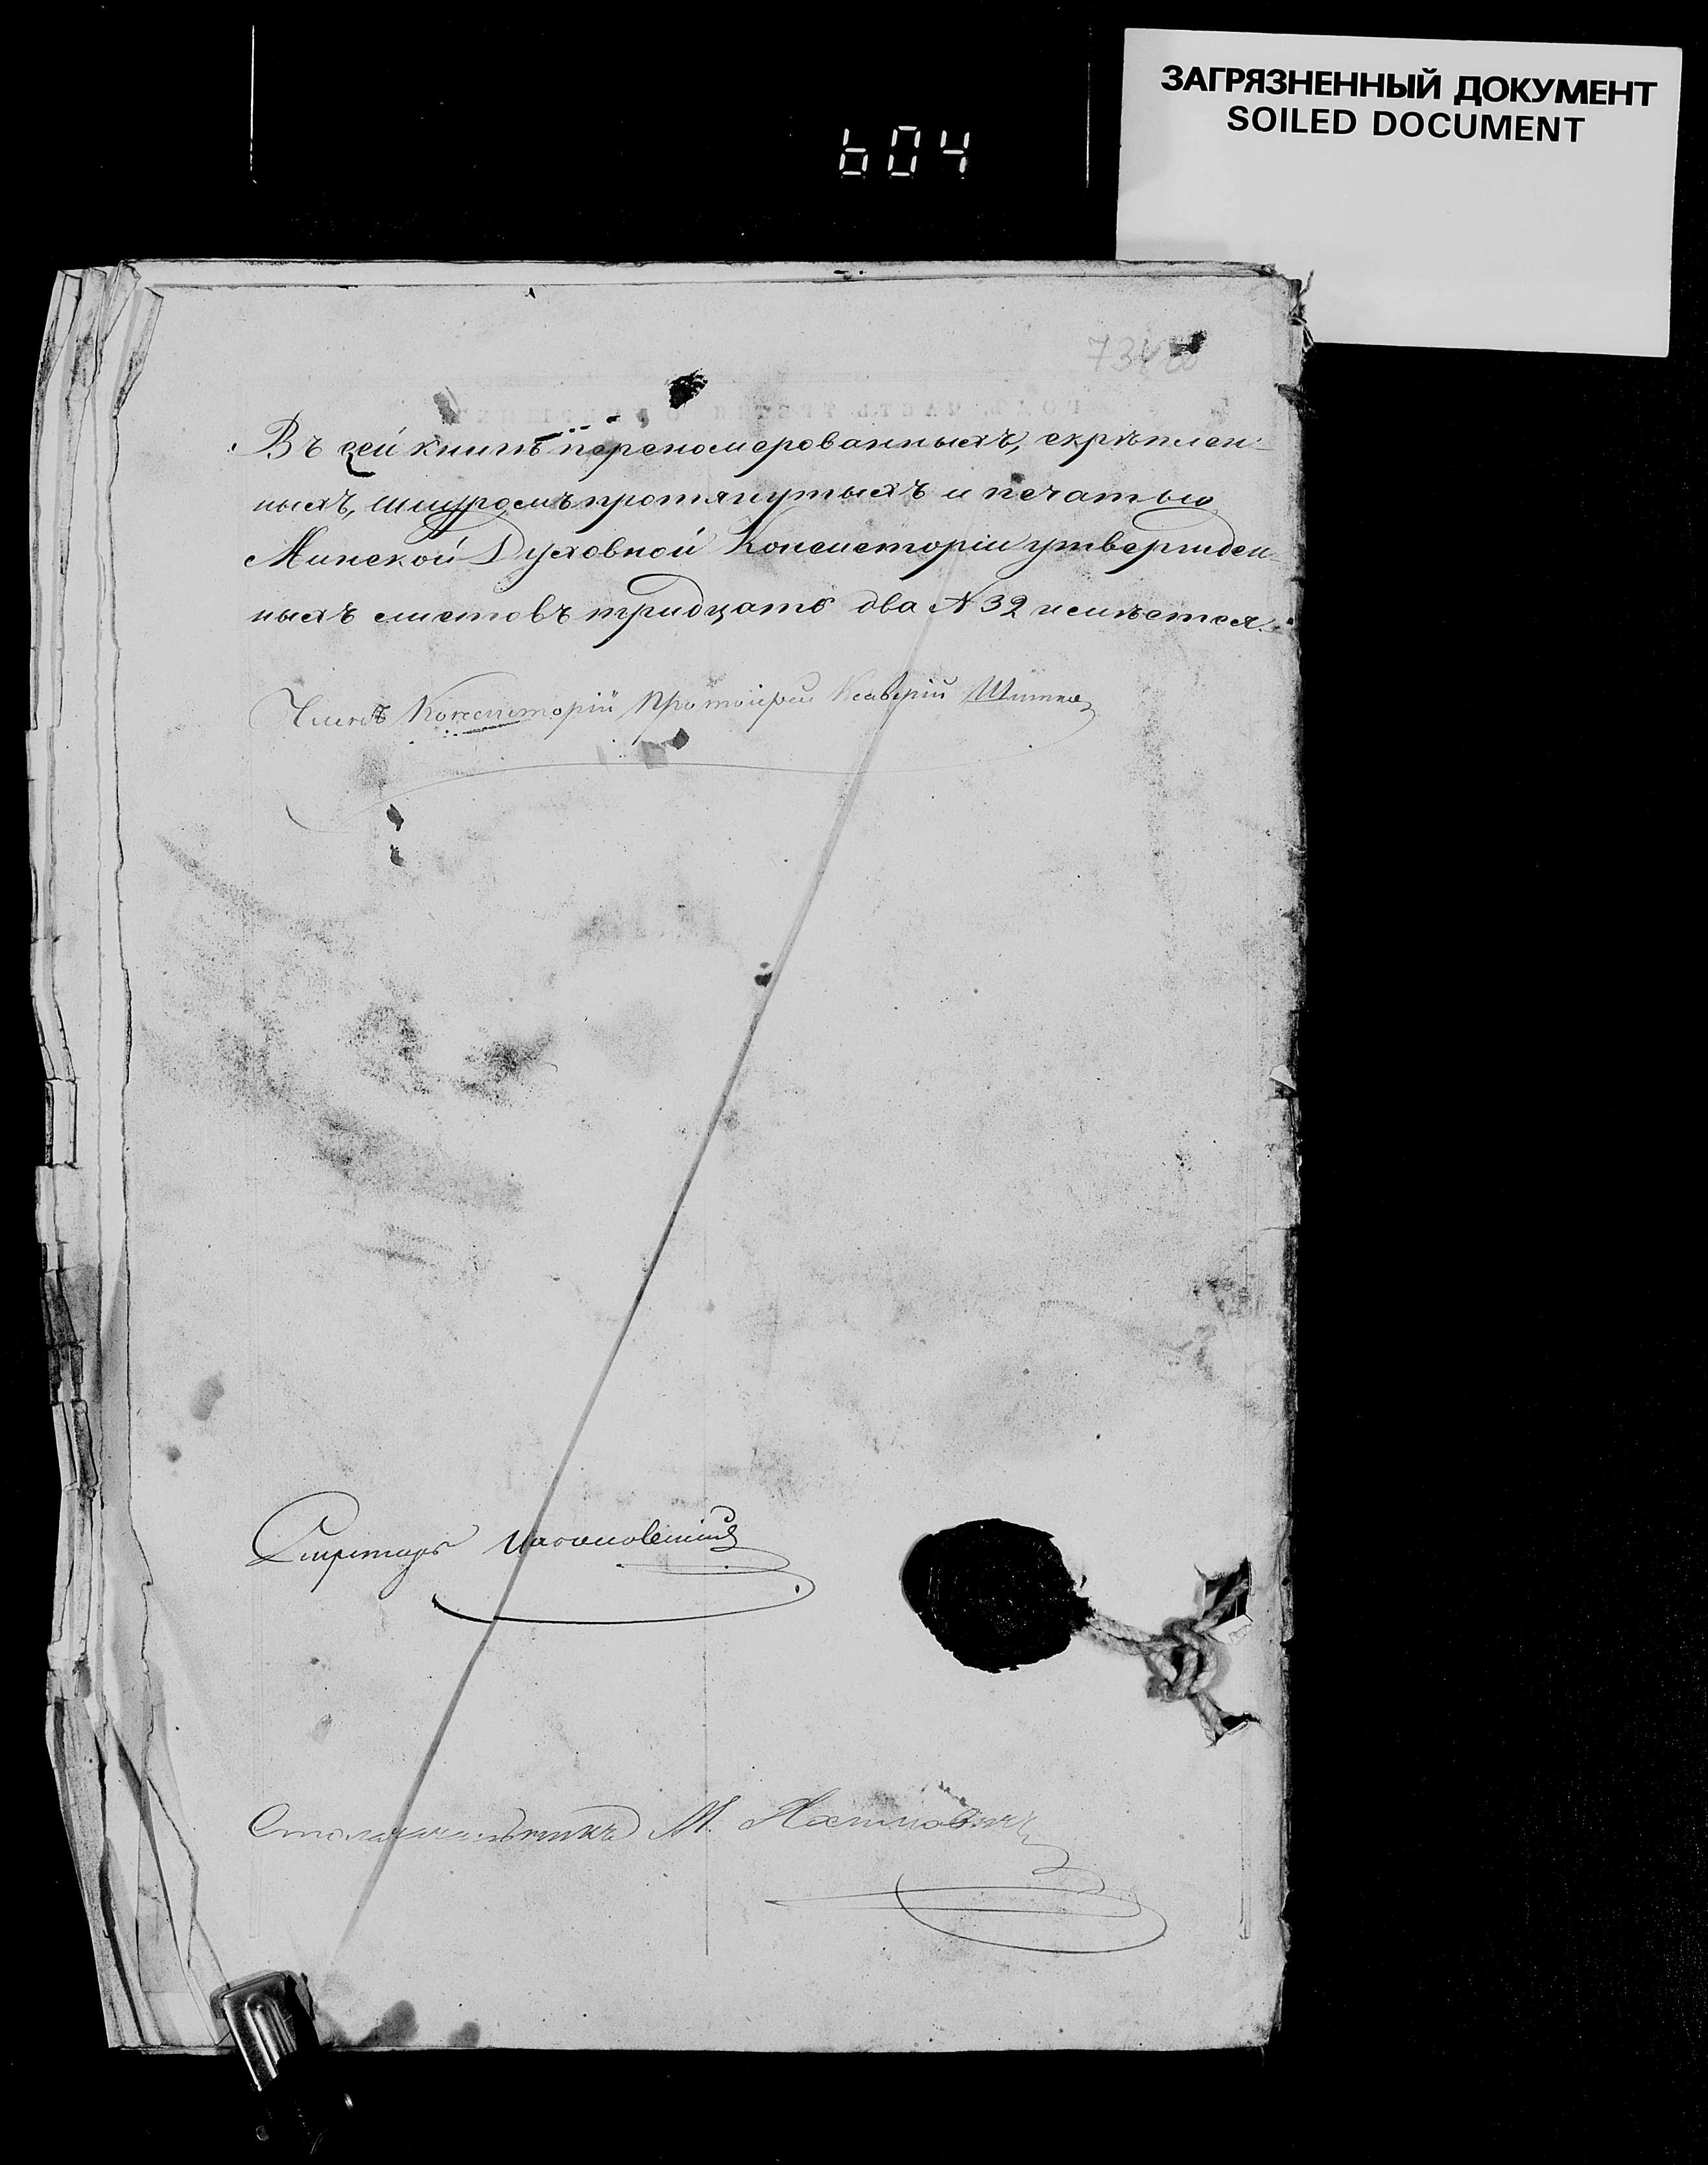 ЗАГРЯЗНЕННЫЙ ДОКУМЕНТ
SOILED DOCUMENT
604
Въ сей книгѣ перенумерованныхъ, скрѣплен-
ныхъ, шнуромъ протянутыхъ и печатью
Минской Духовной Консисторіи утвержден-
ныхъ листовъ тридцать два № 32 имѣется.
Членъ Консисторіи Протоіерей Ксаверій
Секретарь
Столоначальникъ М.